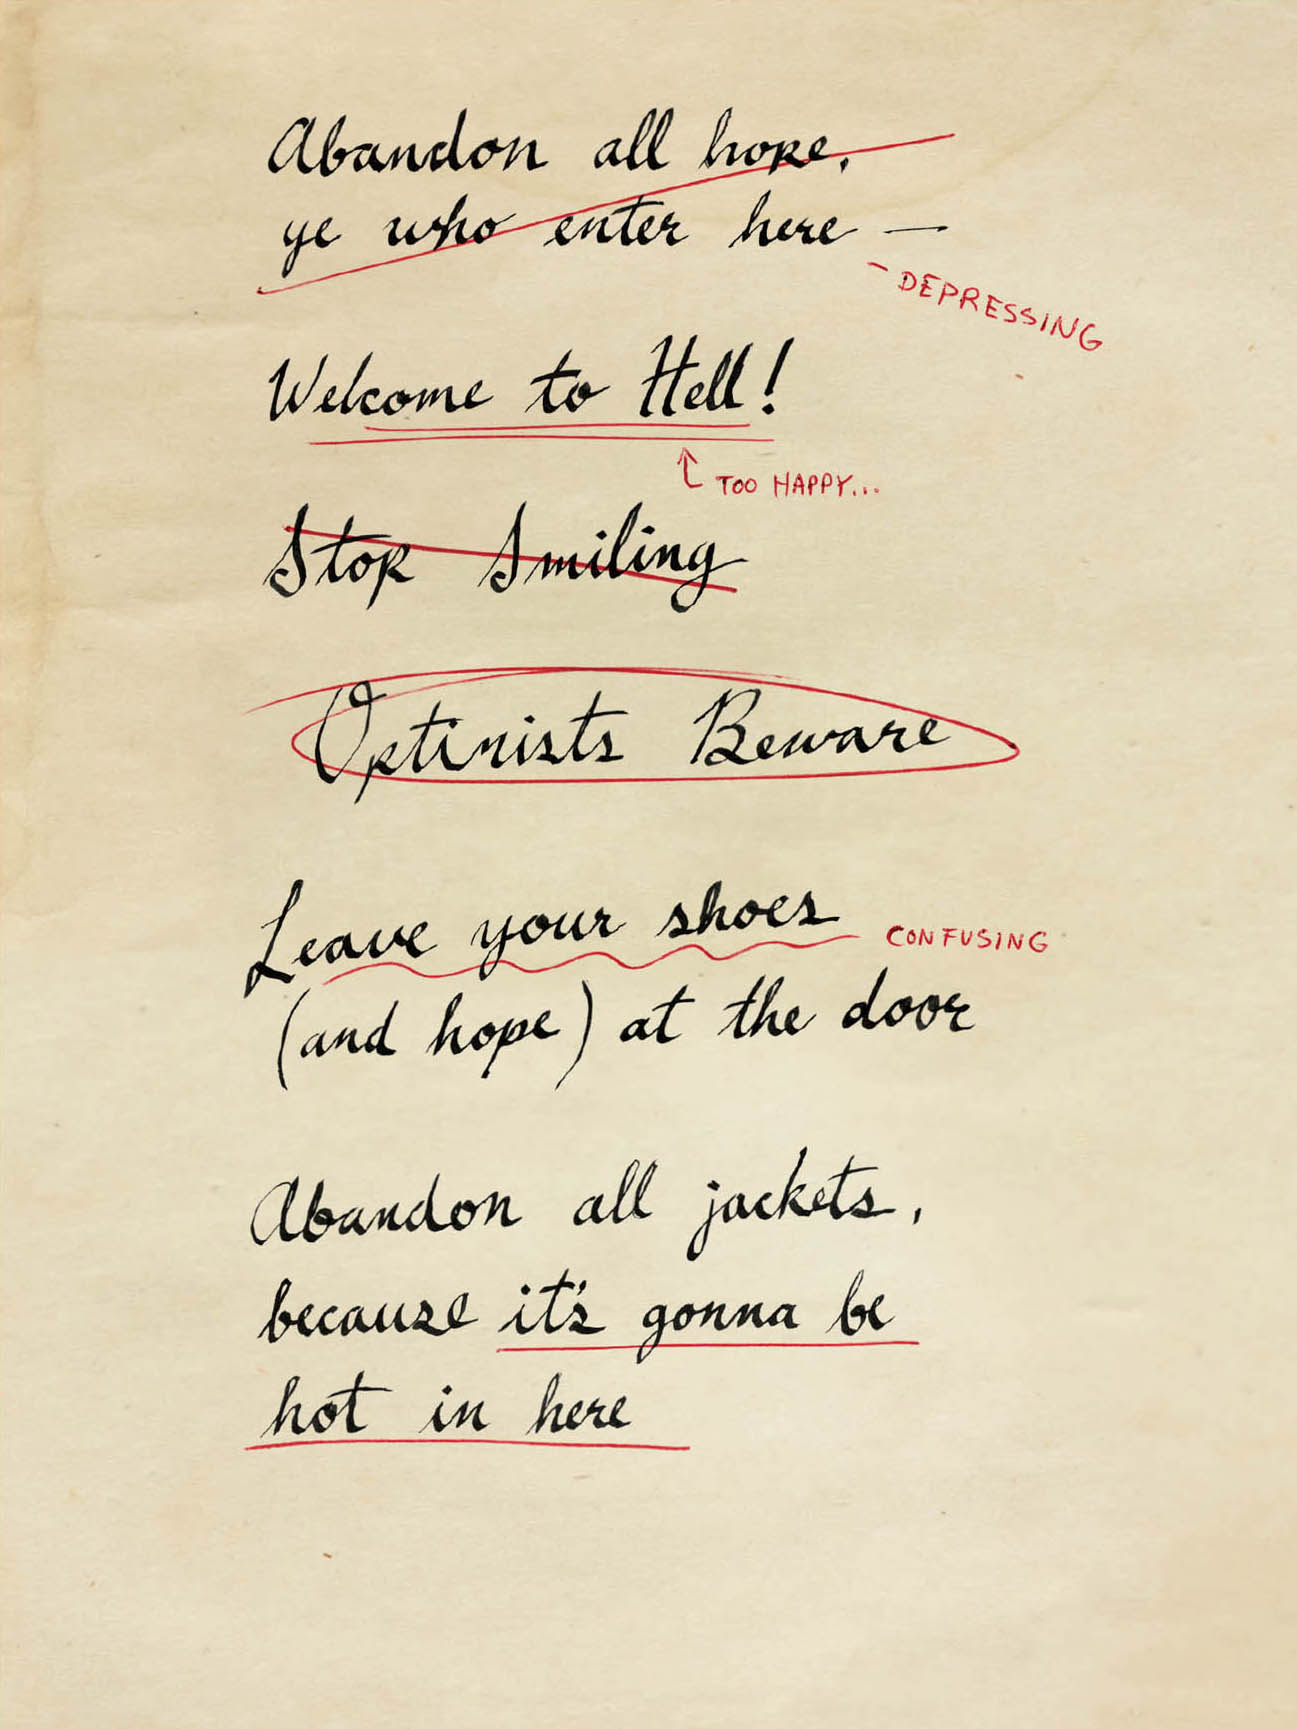 Abandon all hope,
ye who enter here —
- DEPRESSING
Welcome to Hell!
TOO HAPPY...
Stop Smiling
Optimists Beware
Leave your shoes
CONFUSING
(and hope) at the door
Abandon all jackets,
because it's gonna be
hot in here